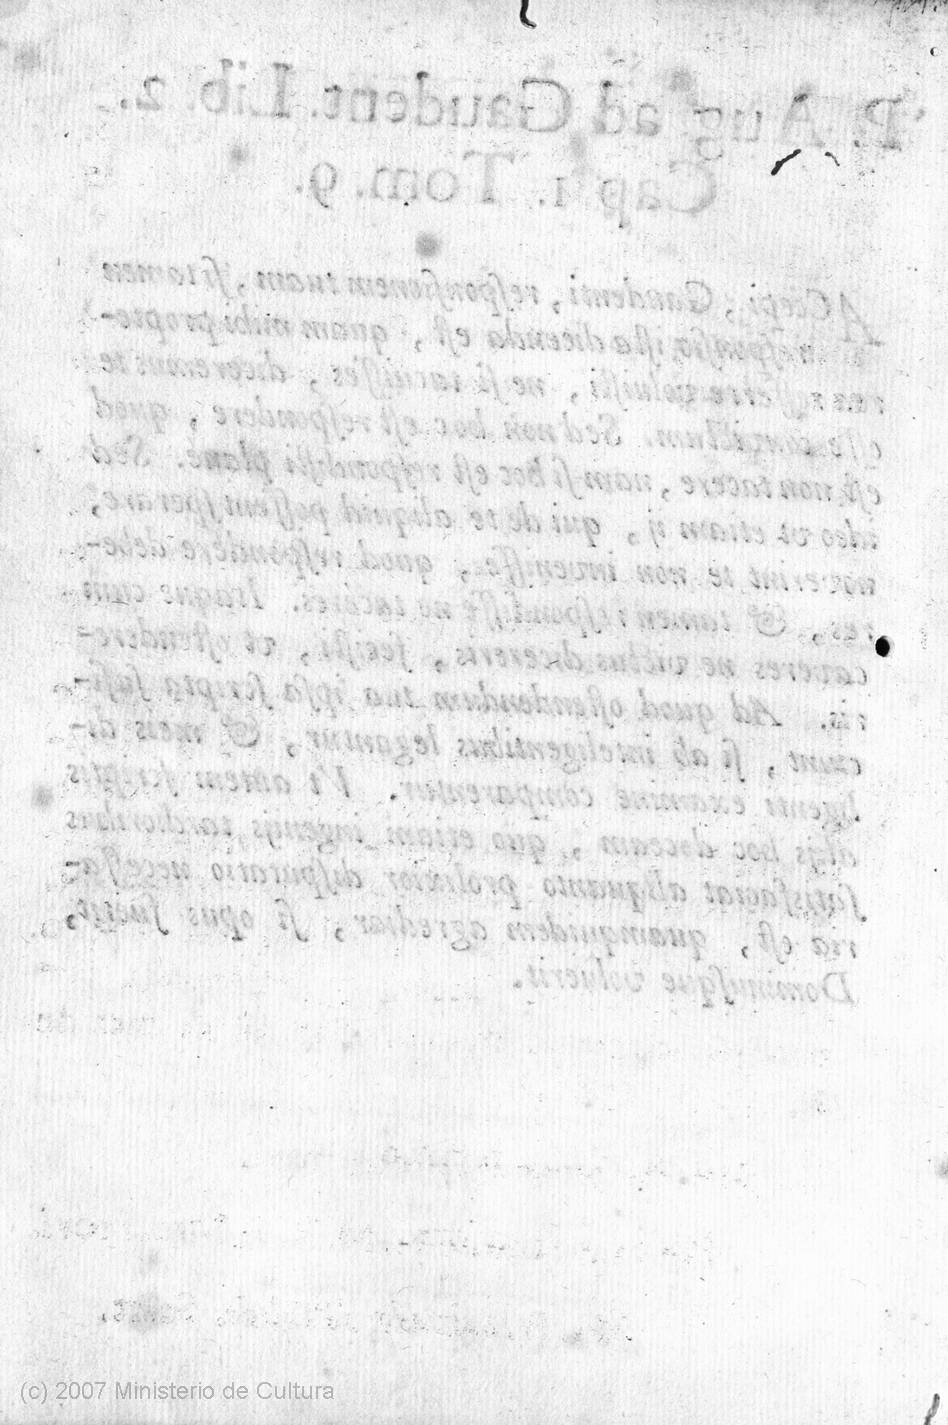 P. Aug. ad Gaudent. Lib. 2.
Cap. 1. Tom. 9.
ACcepi, Gaudenti, responsionem tuam, si tamen
responsio ista dicenda est, quam mihi propte-
rea referre voluisti, ne si tacuisses, diceremus te
esse convictum. Sed non hoc est respondere, quod
est non tacere, nam si hoc est respondisti plane. Sed
ideo vt etiam ij, qui de te aliquid possent sperare,
noverint te non invenisse, quod respondere debe-
res, & tamen respondisse ne taceres. Itaque cum
caveres ne victus dicereris, fecisti, vt ostendere-
ris. Ad quod ostendendum tua ipsa scripta suffi-
ciunt, si ab inteligentibus legantur, & meis di-
ligenti examine comparentur. Vt autem scriptis
alijs hoc doceam, quo etiam ingenijs tardioribus
satisfaciat aliquanto prolixior disputatio necessa-
ria est, quamquidem agrediar, si opus fuerit,
Dominusque voluerit.
(c) 2007 Ministerio de Cultura